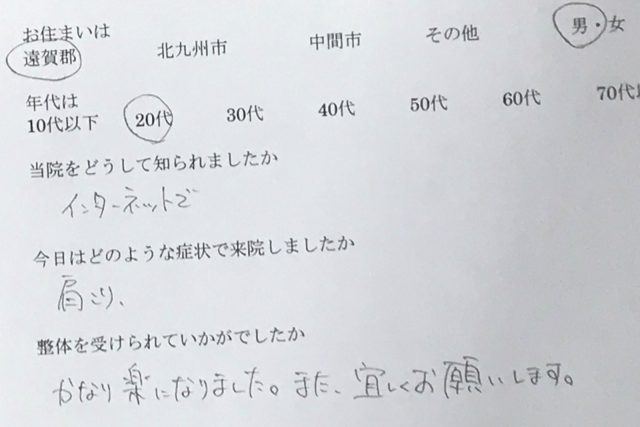 お住まいは
遠賀郡 北九州市 中間市 その他 男・女
年代は
10代以下 20代 30代 40代 50代 60代 70代
当院をどうして知られましたか
インターネットで
今日はどのような症状で来院しましたか
肩こり、
整体を受けられていかがでしたか
かなり楽になりました。また、宜しくお願いします。